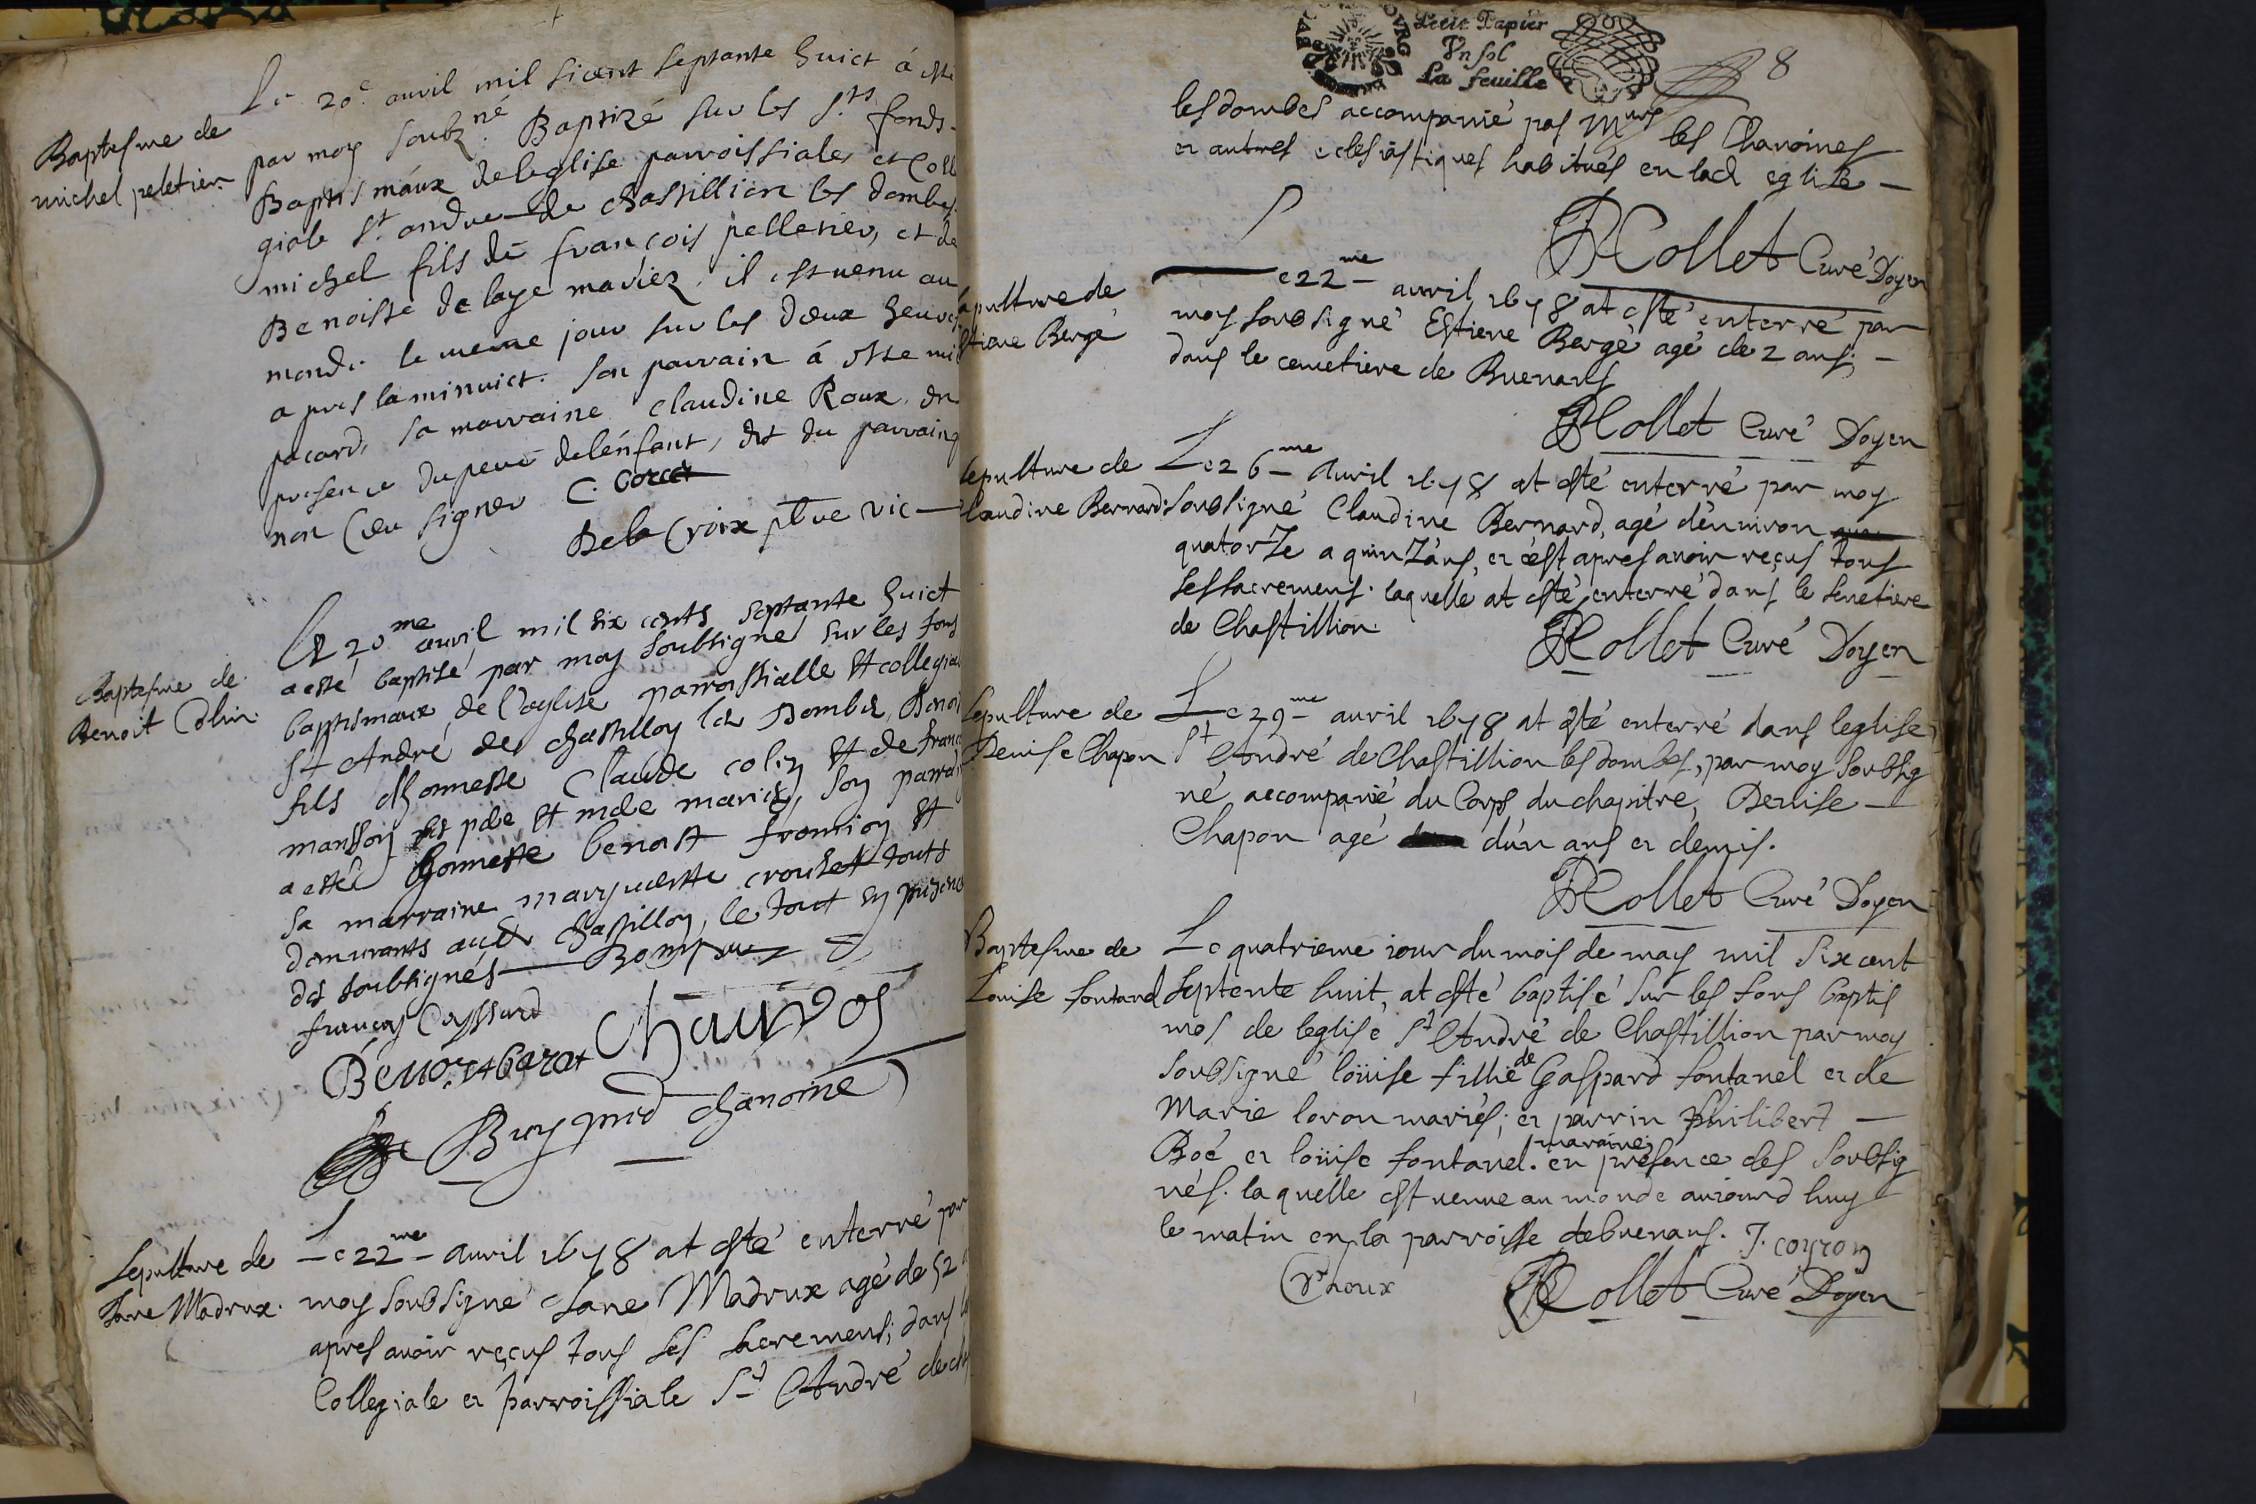 Le 20e auril mil sicent septante huict á esté
par moy soubzné Baptizé sur les Sts fonds
Baptismáux de leglise parroissiale et Colle
giale St andre de chastillion les dombes
michel fils de françois pelletier, et de
Benoiste de laye mariez. il est venu au
monde le meme jour sur les deux heures
apres la minuict. son parrain á esté mi
pacard, sa marraine Claudine Roux. en
presence du pere de lénfant, et du parraing
non sceu signer C. Corcet
Delacroix ptre vic
Baptesme de
michel peletier
Le 20me auril mil six cents septante huict
a esté baptisé par moy soubsigné sur les fons
baptismaux de l'eglise parroissialle et collegia
St André de chastilloy les Dombes, Benoi
fils dhonneste Claude coliy et de franc
manssoy ses pére et mére mariés, soy parrai
a esté honneste benoist fromioy et
sa marraine marguerite crouset touts
demurants audt Chastilloy, le tout ey presence
des soubsignés
françoy Cassard
Chauvos
Benoist barat
Buy chanoine
Baptesme de
Benoit Colin.
Sepulture de
Jane Madrux.
Le 22me auril 1678 at esté enterré par
moy soubsigné Jane Madrux agé de 52
apres auoir reçus tous ses sacremens, dans
Collegiale et parroissiale St André de ch
Petit Papier
Vn sol
La feuille
8
les dombes accompanié pas Mrs les Chanoines
et autres eclesiastiques habitués en lad eglise
RCollet Curé Doyen
Sepulture de
Estiene Bergé
Le 22me auril 1678 at esté enterré par
moy soubsigné Estiene Bergé agé de 2 ans,
dans le cemetiere de Buenans
RCollet Curé Doyen
Sepulture de
Claudine Bernard.
Le 26me Auril 1678 at esté enterré par moy
soubsigné Claudine Bernard, agé d'enuiron
quatorze a quinzáns, et cést apres auoir reçus tous
ses sacremens. laquelle at esté enterré dans le semetiere
de Chastillion.
RCollet Curé Doyen
Sepulture de
Denise Chapon
Le 29me auril 1678 at esté enterré dans leglise
St André de Chastillion les dombes, par moy soubsig
né, accompanié du Corps du chapitre, Denise
Chapon agé d'un ans et demis.
RCollet Curé Doyen
Baptesme de
Louise fontanel
Le quatrieme iour du mois de may mil six cent
septente huit, at esté baptisé sur les fons baptis
mos de leglise St André de Chastillion par moy
soubsigné loüise fillie de Gaspard fontanel et de
Marie loron mariés; et parrin Philibert
Boé et loüise fontanel. maraine; en présence des soubsig
nés. laquelle est venue au monde auiourd huy
le matin en la parroisse debuenans. J. coyron
RCollet Curé Doyen